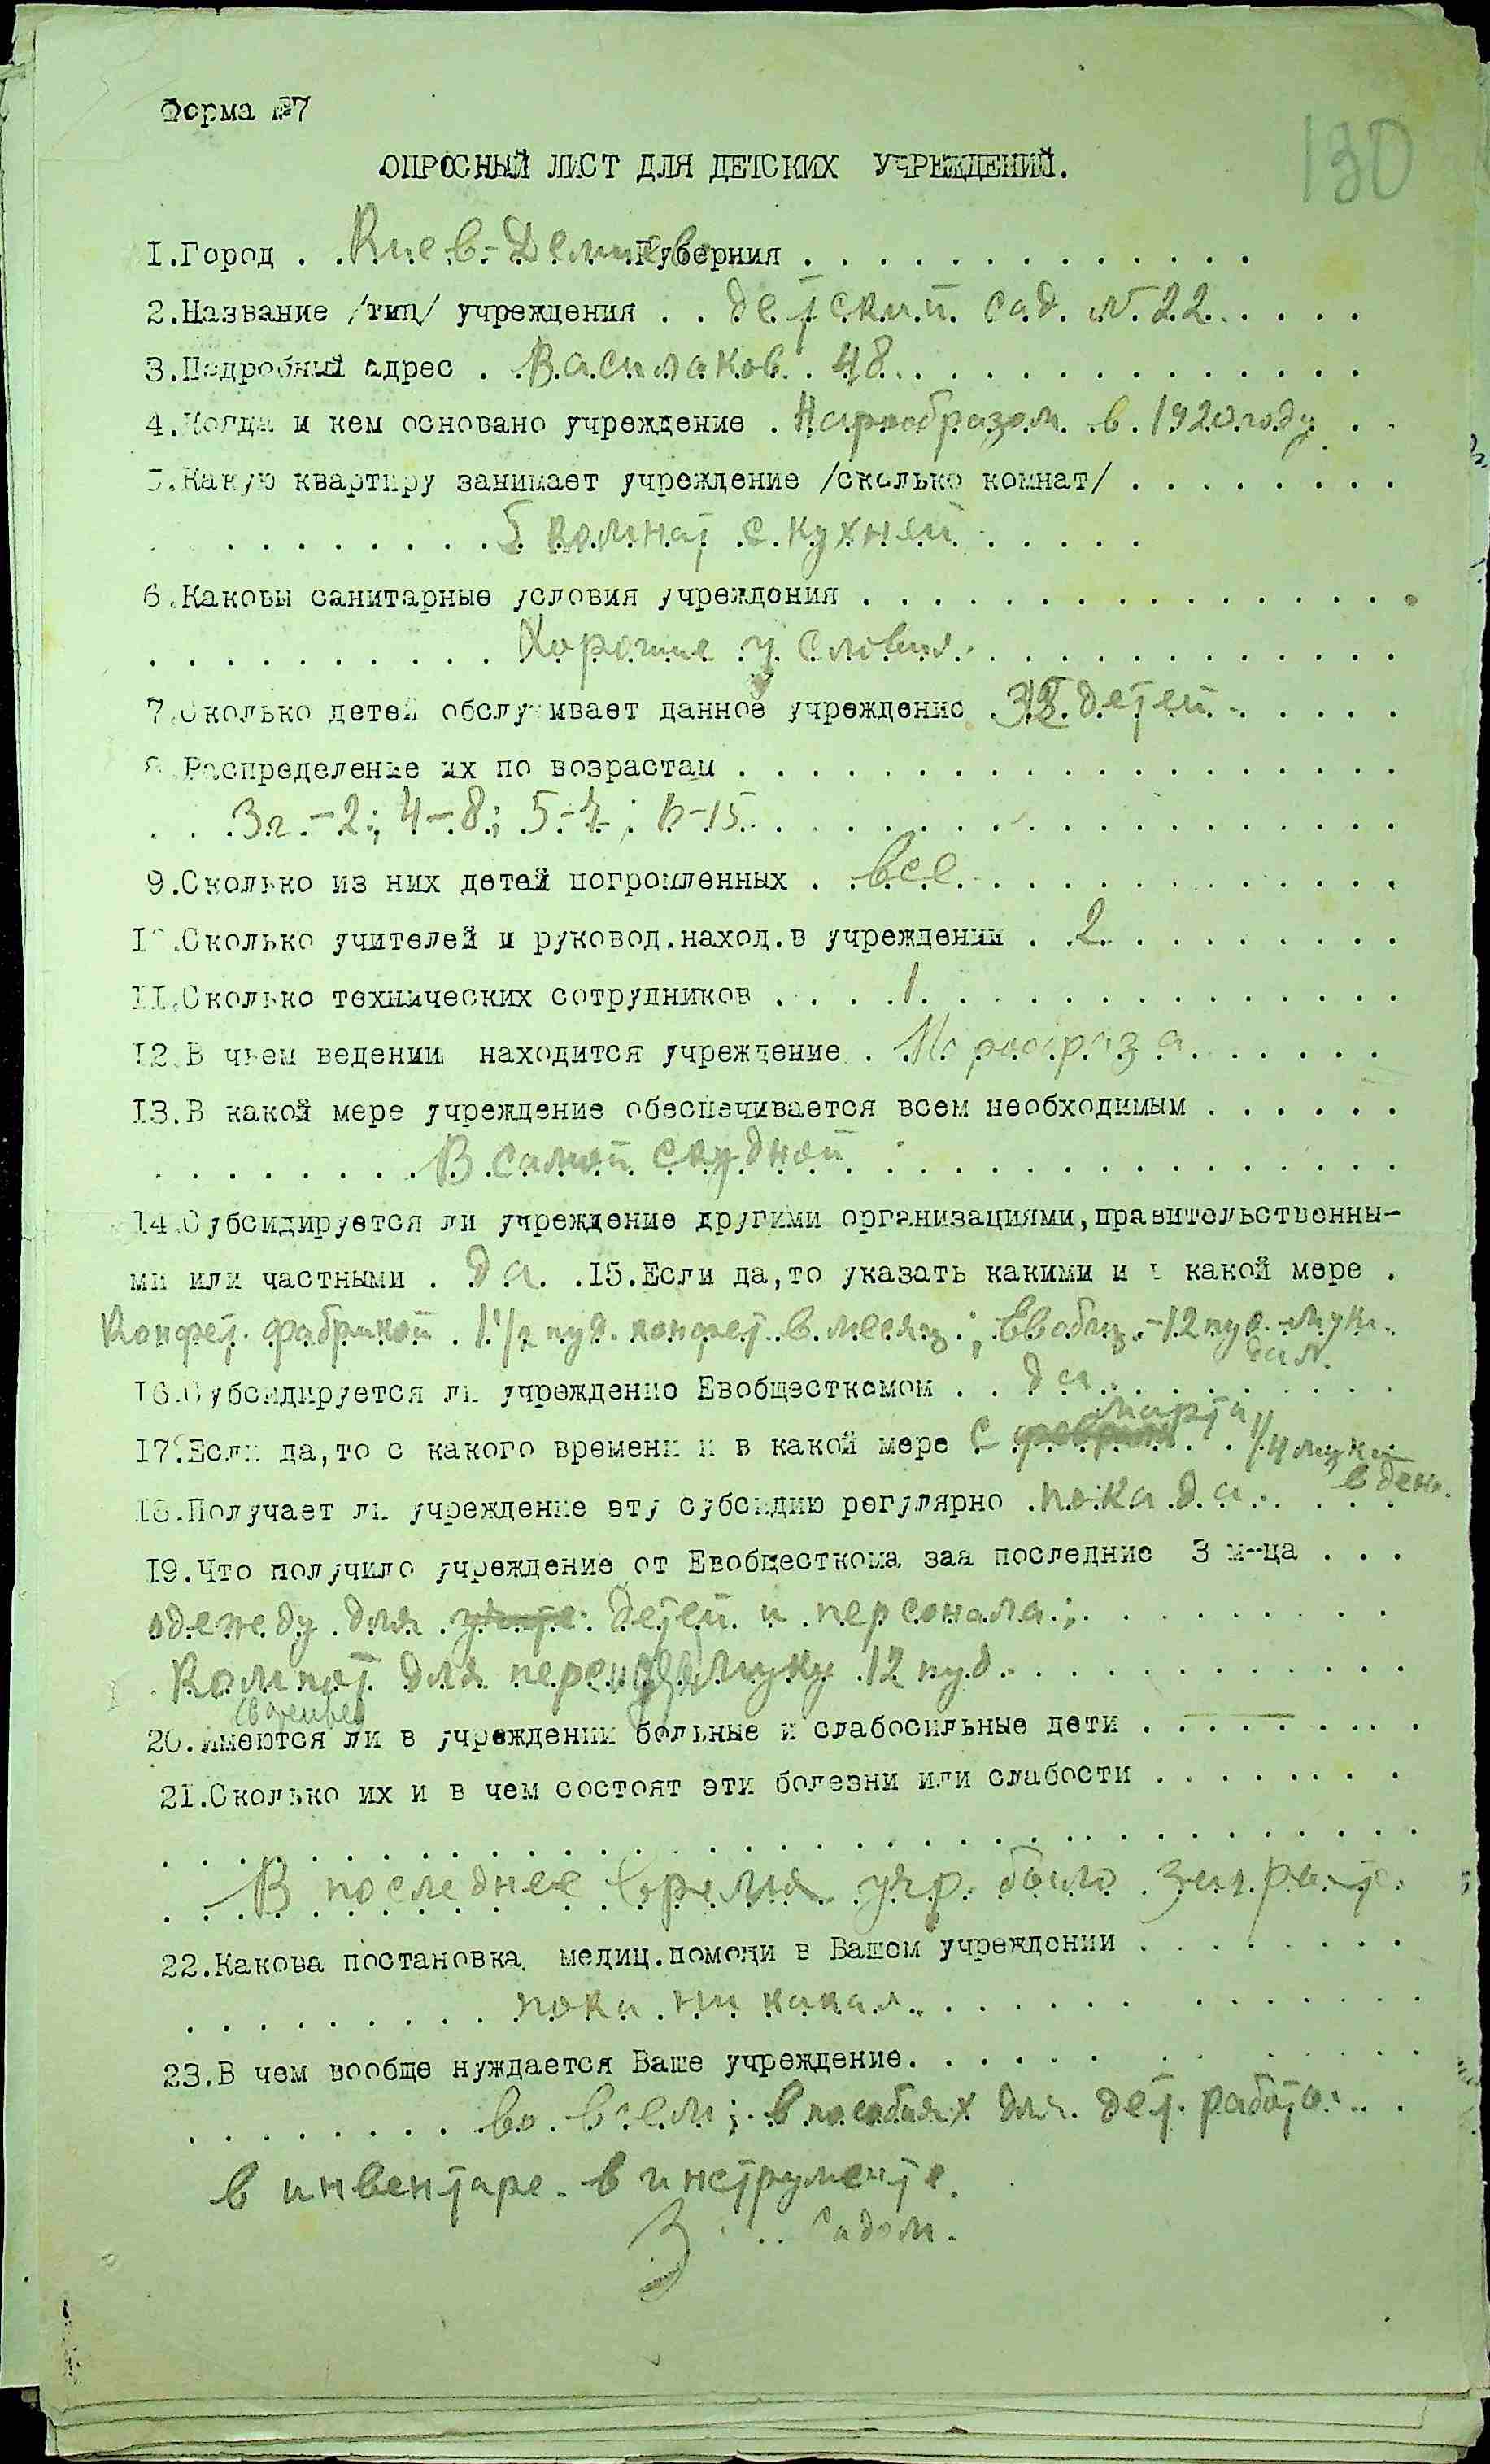 Форма №7
130
ОПРОСНЫЙ ЛИСТ ДЛЯ ДЕТСКИХ УЧРЕЖДЕНИЙ.
I.Город . Киев-Демиевка Губерния . . . . . . . . . . . . .
2.Название /тип/ учреждения . . детский сад. N 22 . . . . .
3.Подробный адрес . Васильков. 48 . . . . . . . . . . . . .
4.Когда и кем основано учреждение . Наробразом в 1920 году . .
5.Какую квартиру занимает учреждение /сколько комнат/ . . . . . . . .
5 комнат с кухней
6.Каковы санитарные условия учреждения . . . . . . . . . . . . . . . .
Хорошие условия.
7.Сколько детей обслуживает данное учреждение детей
8.Распределение их по возрастам . . . . . . . . . . . . . . . . . . .
3 г. - 2; 4 - 8; 5 - 7; 6 - 15
9.Сколько из них детей погромленных . все
10.Сколько учителей и руковод.наход.в учреждении . 2
II.Сколько технических сотрудников . . . . 1
I2.В чьем ведении находится учреждение . Наробраза
I3.В какой мере учреждение обеспечивается всем необходимым . . . . . .
В самой скудной
I4.Субсидируется ли учреждение другими организациями,правительственны-
ми или частными . да . .I5.Если да,то указать какими и в какой мере .
Конфет. фабрикой 1 1/2 пуд. конфет в месяц; Евобщ. - 12 пуд. муки
I6.Субсидируется ли учреждение Евобщесткомом . . да
марта
I7.Если да,то с какого времени и в какой мере с февраля 1/4 муки
в день.
I8.Получает ли учреждение эту субсидию регулярно . пока да
I9.Что получило учреждение от Евобщесткома заа последние 3 м-ца . . .
одежду для детей и персонала;
Компот для муку 12 пуд.
20.Имеются ли в учреждении больные и слабосильные дети . . —
21.Сколько их и в чем состоят эти болезни или слабости . . . . . . . .
В последнее время учр. было
22.Какова постановка медиц.помощи в Вашем учреждении . . . . . . . .
пока никакая
23.В чем вообще нуждается Ваше учреждение. . . . . . . . . . . . . . .
во всем; в пособиях для дет. работы
в инвентаре. в инструменте.
садом.